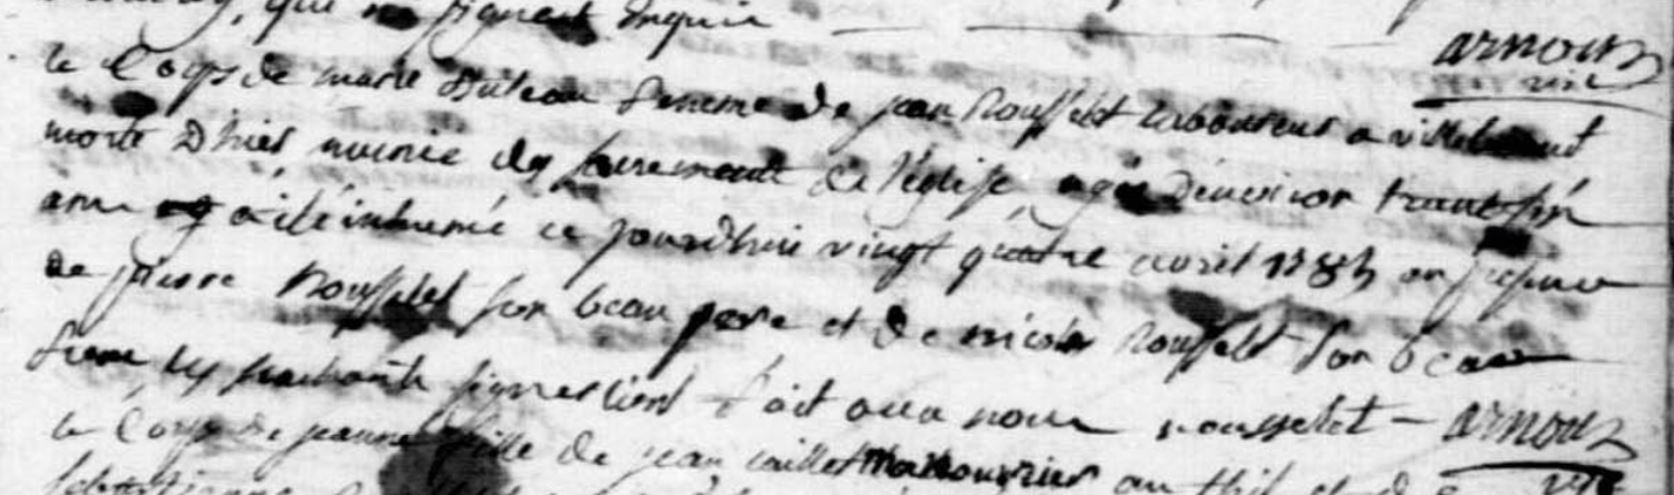 qui ne signent Enquis arnoult
vic
le Corps de marie Buteau femme de jean Rousselet laboureur a
morte D'hier, munie des sacrements de l'église, agée D'environ trente six
ans a été inhumé ce jourd'hui vingt quatre avril 1785 en presence
de pierre Rousselet son beau pere et de nicolas Rousselet son beau
frere les sachants signer l'ont fait avec nous rousselet - arnoult
vic
le Corps de jeanne fille de jean caillet manouvrier au thil et de